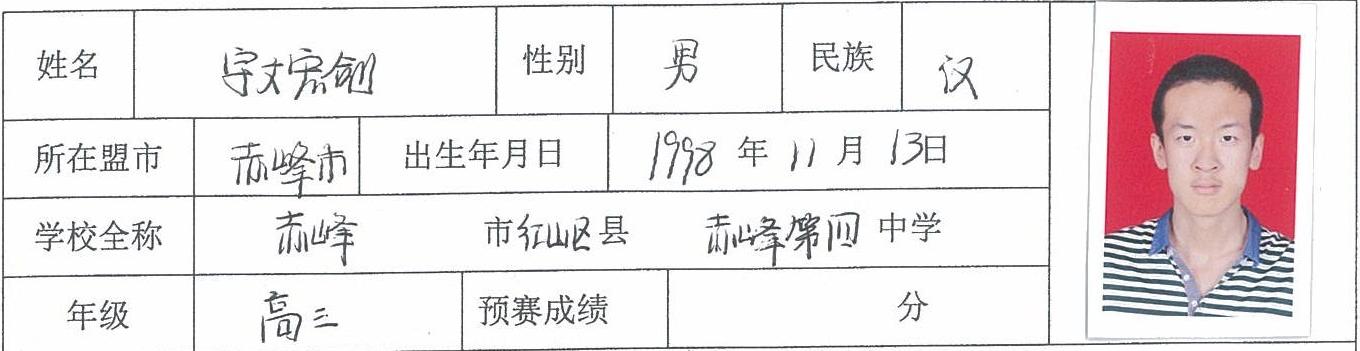 姓名 宇文宏创 性别 男 民族 汉
所在盟市 赤峰市 出生年月日 1998 年 11 月 13日
学校全称 赤峰 市红山区县 赤峰第四 中学
年级 高三 预赛成绩 分